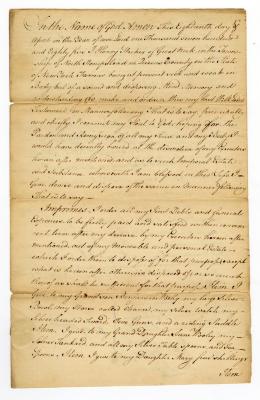 In the Name of God Amen. This Eighteenth day of
in the Year of our Lord one Thousand Seven hundred
and Eighty five I Henry of Great Neck in the Town-
ship of North Hempstead in Queens County in the State
of New York Farmer being at present sick and weak in
Body but of a sound and disposing Mind Memory and
understanding do make and ordain this my last Will and
Testament in Manner following That is to say first of all
and chiefly I commit my Soul to God hoping for the
Pardon and Remission of all my Sins and my Body I
would have decently buried at the discretion of my Executors
herein after mentioned and as to such Temporal Estate
and Substance wherewith I am blessed in this Life I
Give devise and dispose of the same in Manner following
That is to say
Imprimis I order all my Just Debts and funeral
Expences to be fully paid and satisfied in
time after my decease by my Executors herein after
mentioned out of my Moveable and personal Estate
which I order them to dispose of for that purpose except
what is herein after otherwise disposed of or so much
thereof as will be sufficient for that purpose Item I
Give to my Grandson my large Silver
Bowl my my Silver watch my
Silver headed Sword Two Guns and a riding Saddle
Item I give to my Grand Daughter my
Silver Tankard and all my Silver Table Spoons and Tea
Spoons Item I give to my Daughter Mary five shillings
Item